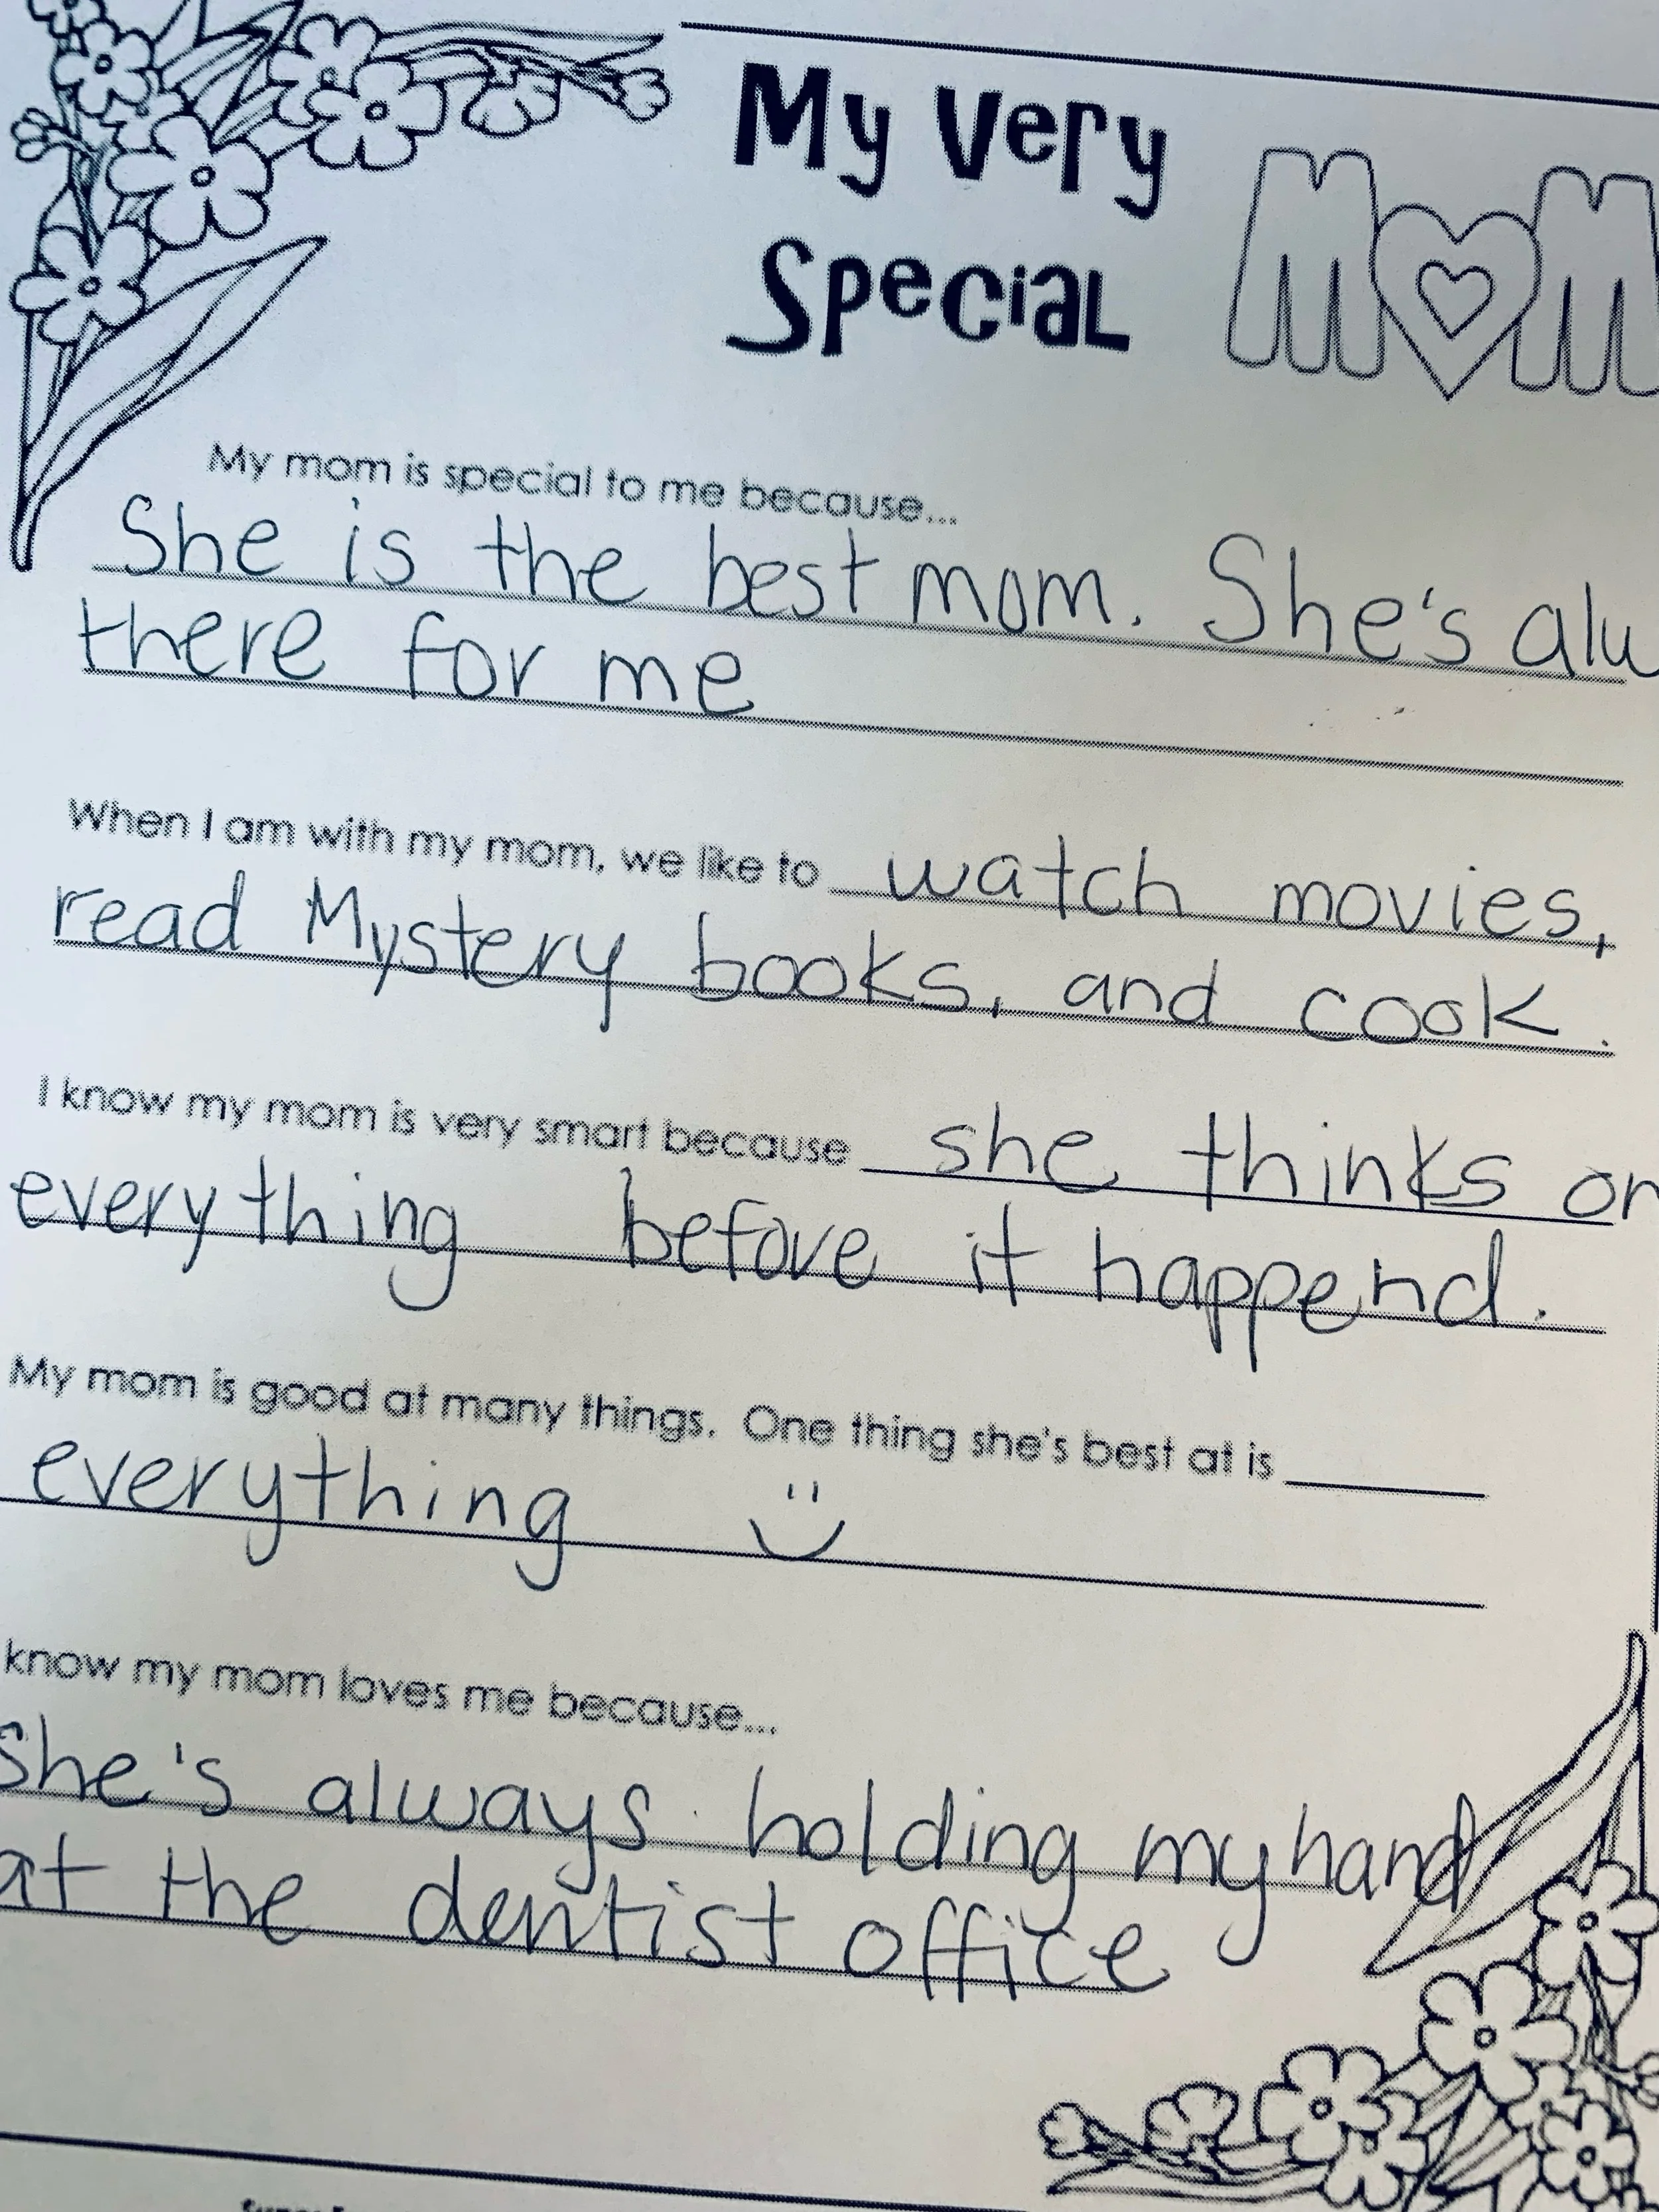 My Very
Special MOM
My mom is special to me because...
She is the best mom. She's alw
there for me
When I am with my mom, we like to watch movies,
read Mystery books, and cook.
I know my mom is very smart because she thinks on
everything before it happend.
My mom is good at many things. One thing she's best at is
everything
know my mom loves me because...
She's always holding my hand
at the dentist office